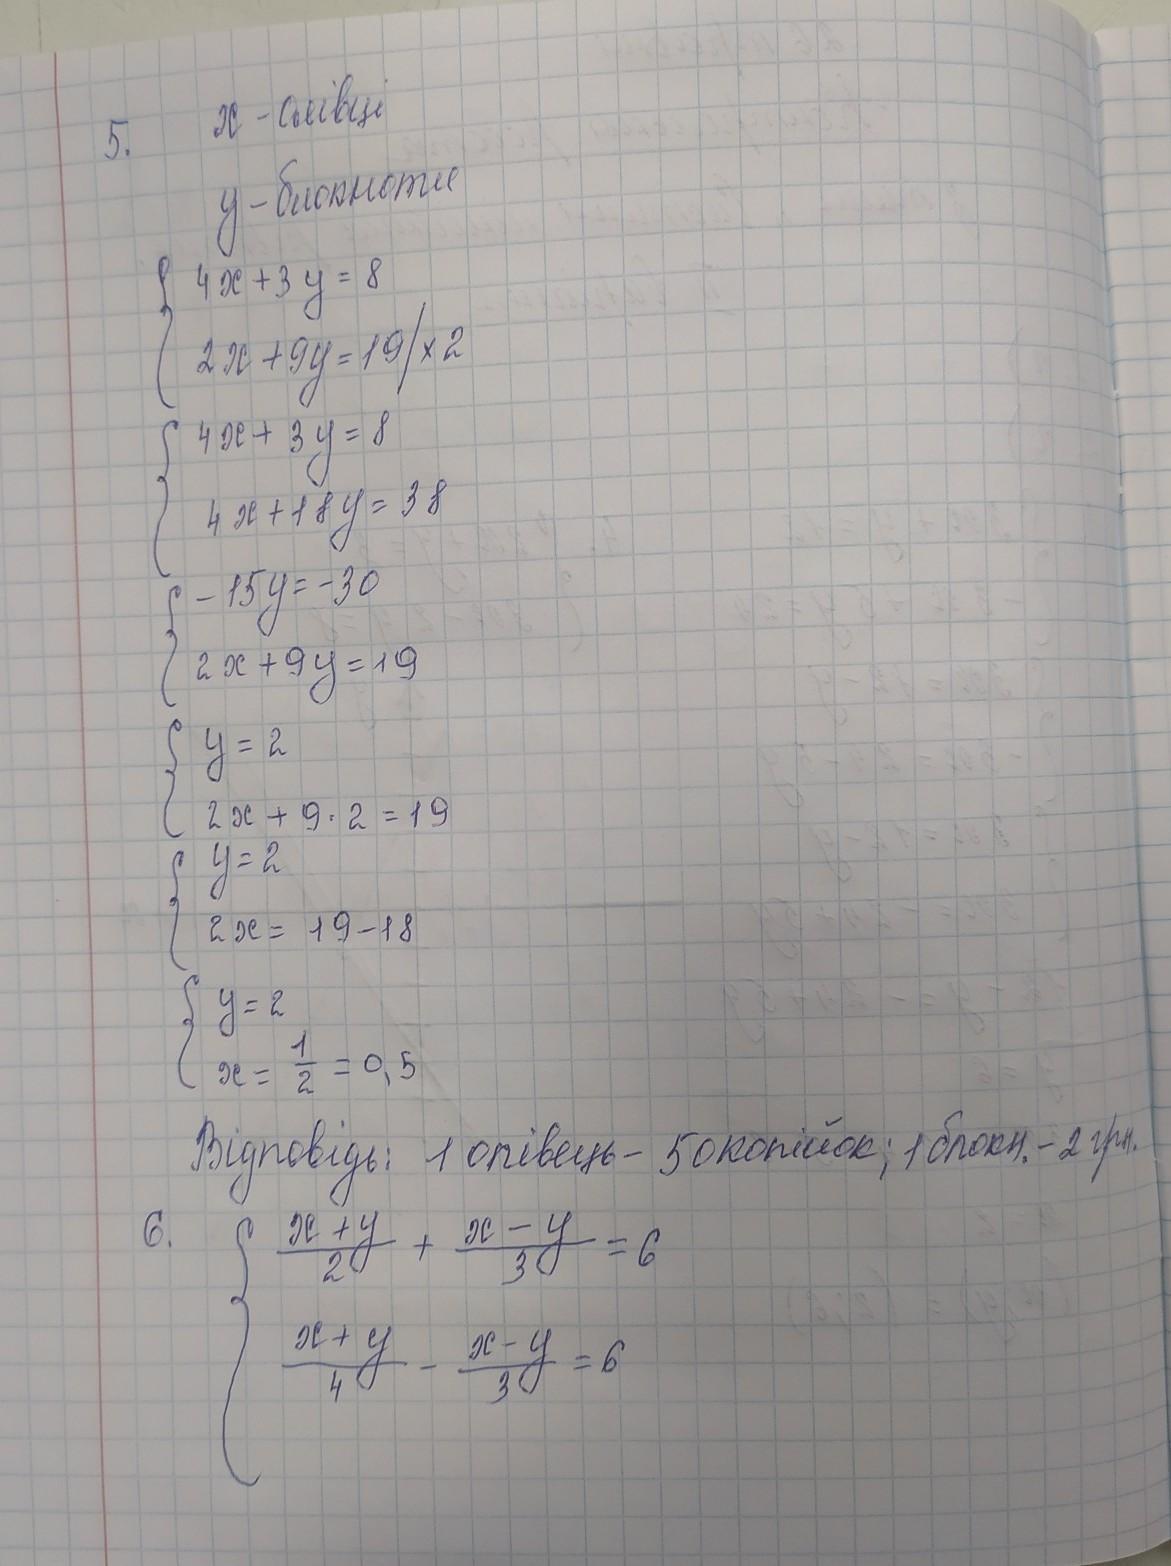 5. x - олівці
y - блокноти
4x + 3y = 8
2x + 9y = 19 / × 2
4x + 3y = 8
4x + 18y = 38
- 15y = -30
2x + 9y = 19
y = 2
2x + 9 · 2 = 19
y = 2
2x = 19 - 18
y = 2
x = 1/2 = 0,5
Відповідь: 1 олівець - 50 копійок; 1 блокн. - 2 грн.
6. (x + y)/2 + (x - y)/3 = 6
(x + y)/4 - (x - y)/3 = 6